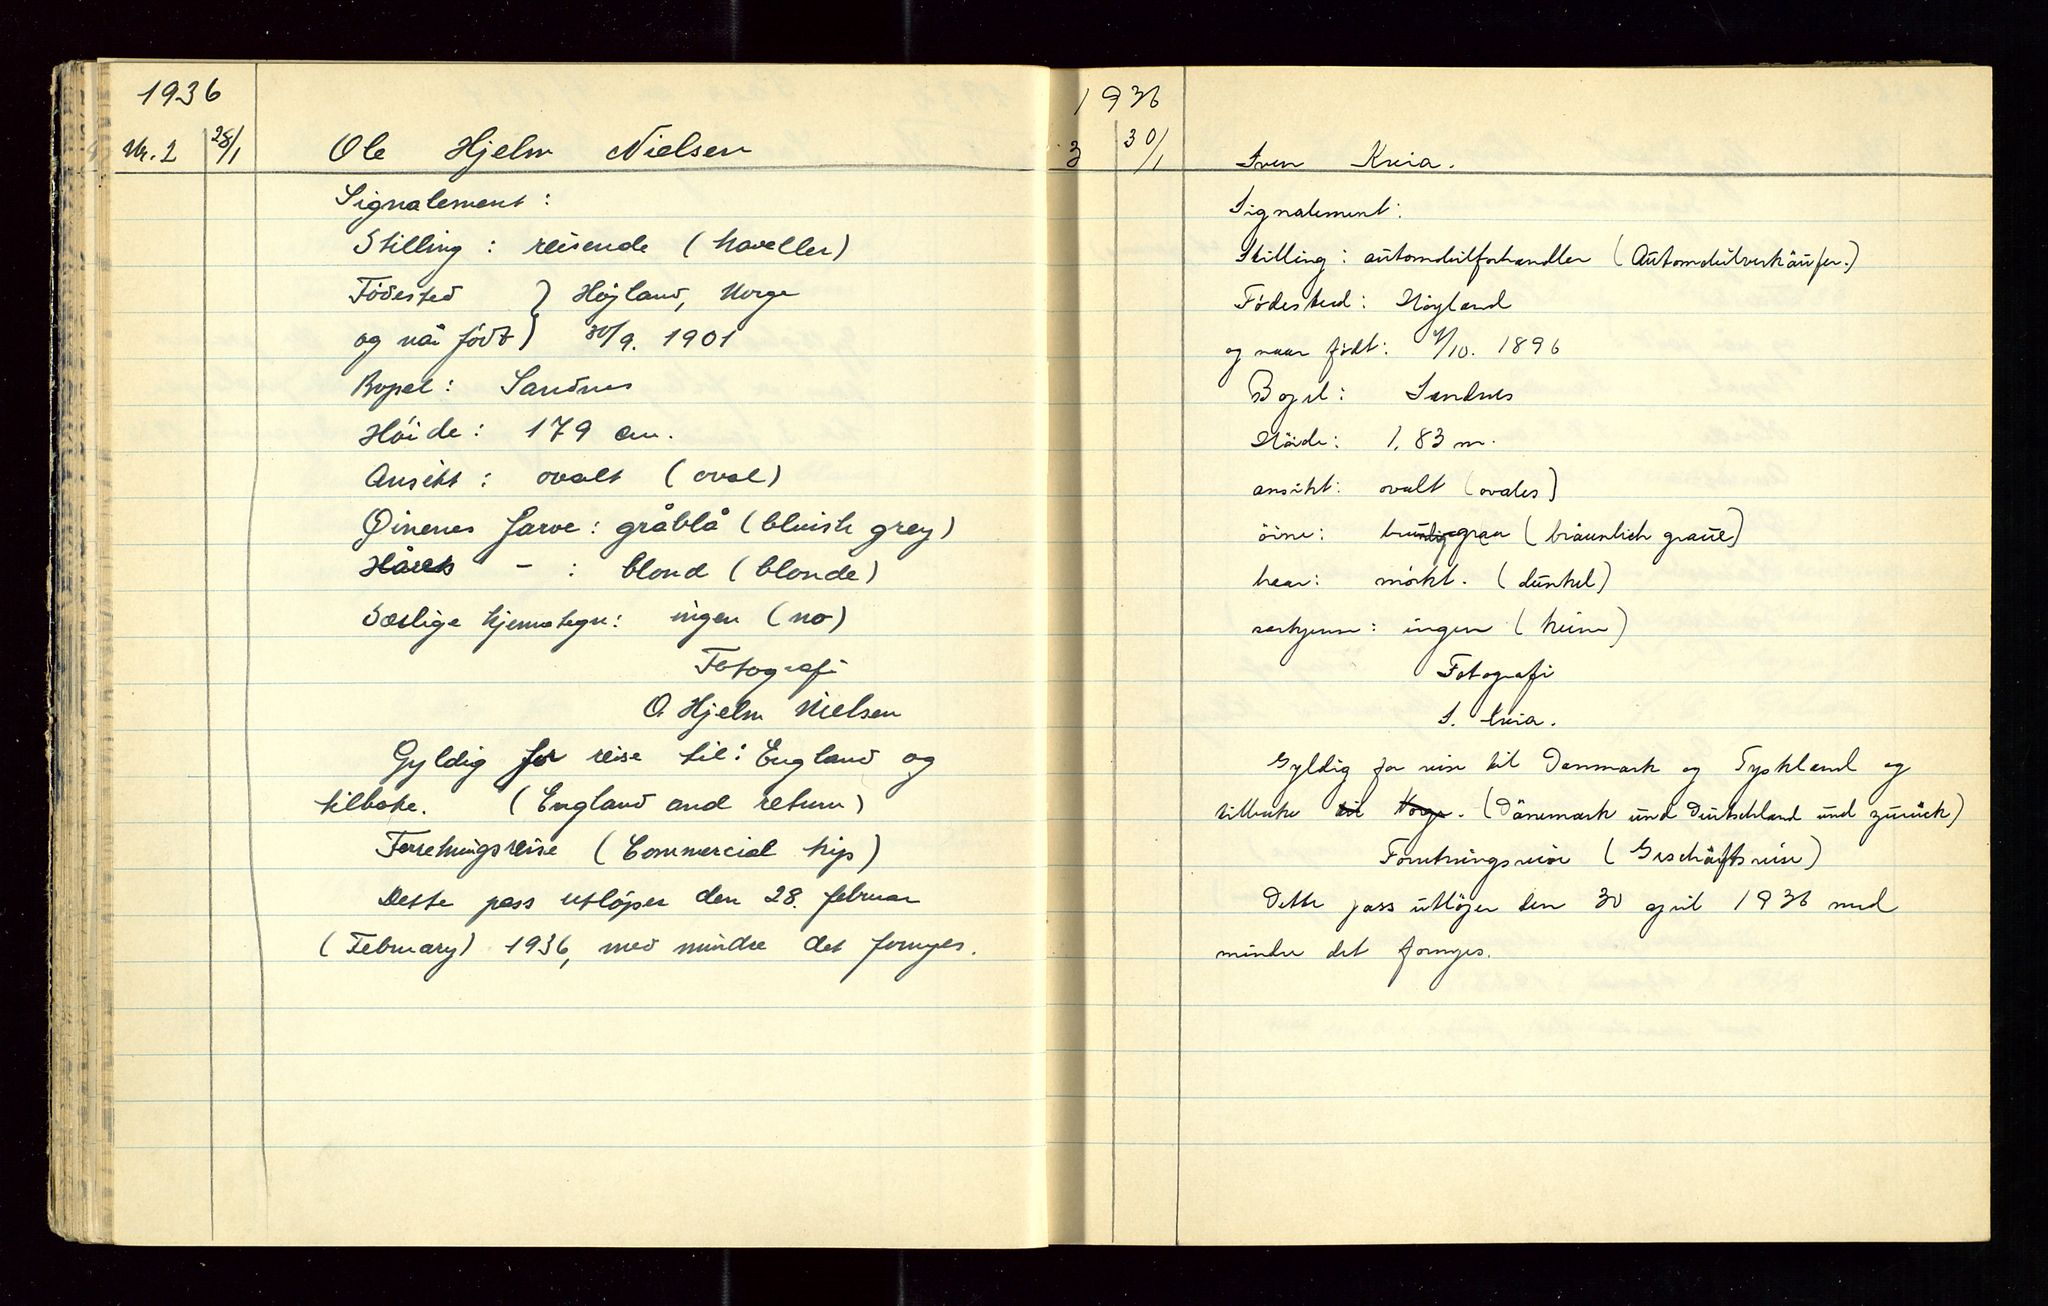 1936
Nr. 2 28/1 Ole Hjelm Nielsen
Signalement:
Stilling: reisende (traveller)
Fødested } Højland, Norge
og når født } 30/9. 1901
Bopæl: Sandnes
Høide: 179 cm.
Ansikt: ovalt (oval)
Øinenes farve: gråblå (bluish grey)
Hårets - : blond (blonde)
Særlige kjennetegn: ingen (no)
Fotografi
O. Hjelm Nielsen
Gyldig for reise til: England og
tilbake. (England and return)
Forretningsreise (Commercial trip)
Dette pass utløper den 28. februar
(February) 1936, med mindre det fornyes.
1936
3 30/1 Sven Kvia.
Signalement:
Stilling: automobilforhandler (Automobilverkäufer.)
Fødested: Høyland
og naar født: /10. 1896
Bopel: Sandnes
Høide: 1,83 m.
ansikt: ovalt (ovales)
öine: brunliggraa (bräunlich graue)
haar: mörkt. (dunkel)
særkjenne: ingen (keine)
Fotografi
S. Kvia.
Gyldig for reise til Danmark og Tyskland og
tilbake til Norge. (Dänemark und Deutschland und zurück)
Forretningsreise (Geschäftsreise)
Dette pass utløper den 30 april 1936 med
mindre det fornyes.